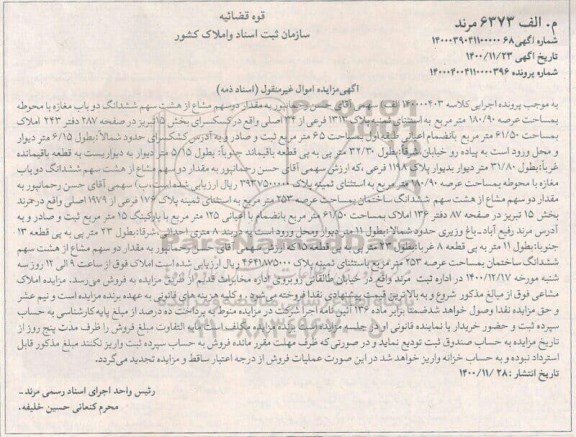 قوه قضائیه
سازمان ثبت اسناد واملاک کشور
م. الف ۶۳۷۳ مرند
شماره آگهی: ۱۴۰۰۰۳۹۰۴۱۱۰۰۰۰۰۶۸
تاریخ آگهی: ۱۴۰۰/۱۱/۲۳
شماره پرونده: ۱۴۰۰۰۴۰۰۴۱۱۰۰۰۰۳۹۶
آگهی مزایده اموال غیرمنقول (اسناد ذمه)
به موجب پرونده اجرایی کلاسه ۱۴۰۰۰۴۰۳ الف) سهمی آقای حسن رحمانپور به مقدار دوسهم مشاع از هشت سهم ششدانگ دو باب مغازه با محوطه
بمساحت عرصه ۱۸۰/۹۰ متر مربع به استثنای ثمنیه پلاک ۱۳۱۳ فرعی از ۳۴ اصلی واقع در کشکسرای بخش ۱۵ تبریز در صفحه ۲۸۷ دفتر ۲۴۳ املاک
بمساحت ۶۱/۵۰ متر مربع بانضمام اعیانی طبقه اول بمساحت ۶۵ متر مربع ثبت و صادر و به آدرس کشکسرای حدود شمالا: بطول ۶/۱۵ متر دیوار
و محل ورود است به پیاده رو خیابان شرقا: بطول ۳۲/۳۰ متر پی به پی قطعه باقیماند جنوبا: بطول ۵/۱۵ متر دیوار به دیواریست به قطعه باقیمانده
غربا: بطول ۳۱/۸۰ متر دیوار بدیوار پلاک ۱۱۹۸ فرعی، که ارزش سهمی آقای حسن رحمانپور به مقدار دو سهم مشاع از هشت سهم ششدانگ دو باب
مغازه با محوطه بمساحت عرصه ۱۸۰/۹۰ متر مربع به استثنای ثمنیه پلاک ۳۹۳۷۵۰۰۰۰۰ ریال ارزیابی شده است، ب) سهمی آقای حسن رحمانپور به
مقدار دو سهم مشاع از هشت سهم ششدانگ ساختمان بمساحت عرصه ۲۵۳ متر مربع به استثنای ثمنیه پلاک ۱۷۶ فرعی از ۱۹۷۹ اصلی واقع درمرند
بخش ۱۵ تبریز در صفحه ۸۷ دفتر ۱۳۶ املاک بمساحت ۶۱/۵۰ متر مربع بانضمام با اعیانی ۱۲۵ متر مربع با پارکینگ ۱۵ متر مربع ثبت و صادر و به
آدرس مرند رفیع آباد-باغ وزیری حدود شمالا: بطول ۱۱ متر دیوار ومحل ورود است به دربند ۸ متری احداثی شرقا: بطول ۲۳ متر پی به پی قطعه ۱۳
جنوبا: بطول ۱۱ متر به پی قطعه ۸ غربا: بطول ۲۳ متر پی به پی قطعه ۱۵ که ارزش سهمی آقای حسن رحمانپور به مقدار دو سهم مشاع از هشت سهم
ششدانگ ساختمان بمساحت عرصه ۲۵۳ متر مربع باستثنای ثمنیه پلاک ۴۶۴۱۸۷۵۰۰۰ ریال ارزیابی شده است املاک فوق از ساعت ۹ الی ۱۲ روز سه
شنبه مورخه ۱۴۰۰/۱۲/۱۷ در اداره ثبت مرند واقع در خیابان طالقانی روبروی قازه ماکارخانات قدایم از طریق مزایده به فروش می رسد. مزایده املاک
مشاعی فوق از مبالغ مذکور شروع و به بالاترین قیمت پیشنهادی نقدا فروخته می شود و کلیه هزینه های قانونی به عهده برنده مزایده است و نیم عشر
و حق مزایده نقدا وصول خواهد شد ضمنا برابر ماده ۱۳۶ آئین نامه اجرا شرکت در مزایده منوط به پرداخت ده درصد از مبلغ پایه کارشناسی به حساب
سپرده ثبت و حضور خریدار یا نماینده قانونی او در جلسه مزایده مابه التفاوت مبلغ فروش را ظرف مدت پنج روز از
تاریخ مزایده به حساب صندوق ثبت تودیع نماید و در صورتی که ظرف مهلت مقرر مانده فروش به حساب سپرده ثبت واریز نکنند مبلغ مذکور قابل
استرداد نبوده و به حساب خزانه واریز خواهد شد در این صورت عملیات فروش از درجه اعتبار ساقط و مزایده تجدید می گردد.
تاریخ انتشار: ۱۴۰۰/۱۱/۲۸
رئیس واحد اجرای اسناد رسمی مرند-
محرم کنعانی حسین خلیفه.